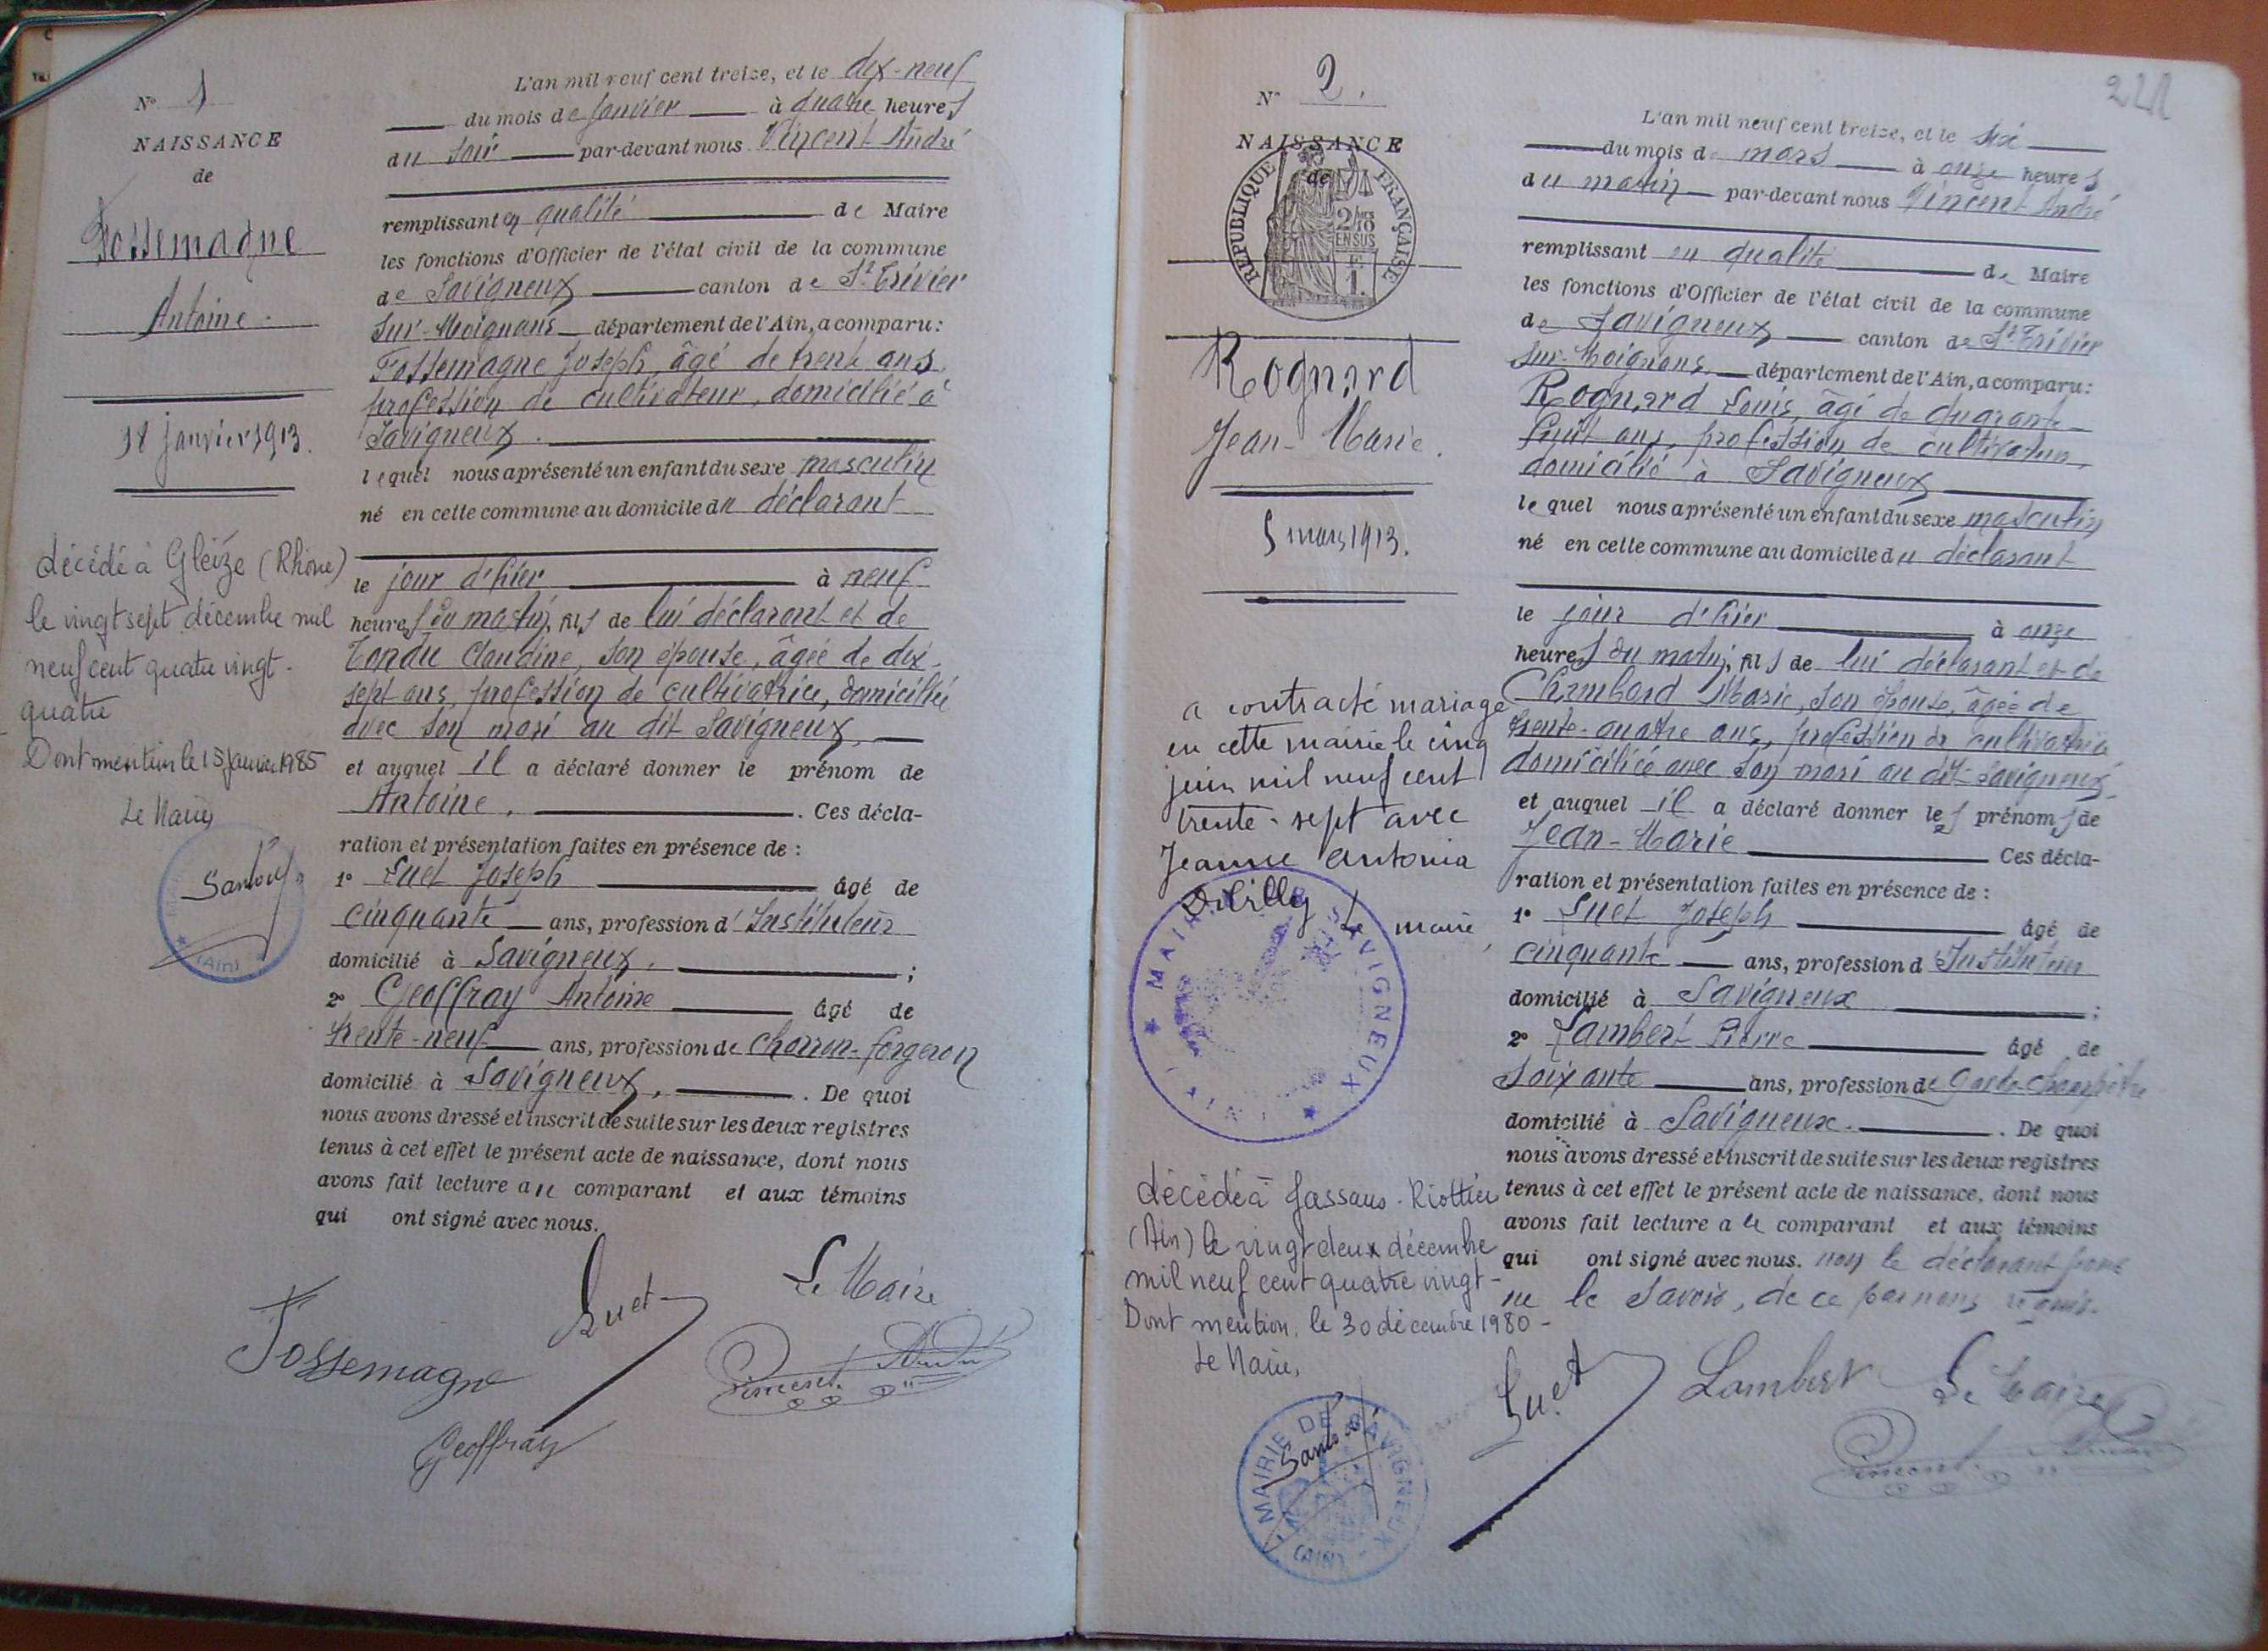 N° 1
NAISSANCE
de
Fossemagne
Antoine.
18 janvier 1913.
décédé à Gleizé (Rhône)
le vingt sept décembre mil
neuf cent quatre vingt-
quatre
Dont mention le 15 janvier 1985
Le Maire
(Ain)
L'an mil neuf cent treize, et le dix-neuf
du mois de janvier à quatre heures
du soir par-devant nous Vincent André
remplissant en qualité de Maire
les fonctions d'Officier de l'état civil de la commune
de Savigneux canton de St Trivier
sur-Moignans département de l'Ain, a comparu:
Fossemagne Joseph, âgé de trente ans,
profession de cultivateur, domicilié à
Savigneux.
lequel nous a présenté un enfant du sexe masculin
né en cette commune au domicile du déclarant
le jour d'hier à neuf
heures du matin, fils de lui déclarant et de
Tondu Claudine, son épouse, âgée de dix-
sept ans, profession de cultivatrice, domiciliée
avec son mari au dit Savigneux,
et auquel il a déclaré donner le prénom de
Antoine. Ces décla-
ration et présentation faites en présence de :
1° Suet Joseph âgé de
cinquante ans, profession d'Instituteur
domicilié à Savigneux. ;
2° Geoffray Antoine âgé de
trente-neuf ans, profession de charron-forgeron
domicilié à Savigneux. . De quoi
nous avons dressé et inscrit de suite sur les deux registres
tenus à cet effet le présent acte de naissance, dont nous
avons fait lecture au comparant et aux témoins
qui ont signé avec nous.
Le Maire
Suet
Fossemagne
Vincent André
Geoffray
221
N° 2.
NAISSANCE
de
REPUBLIQUE FRANÇAISE
2/10
EN SUS
1.
Rognard
Jean-Marie.
5 mars 1913.
a contracté mariage
en cette mairie le cinq
juin mil neuf cent
trente-sept avec
Jeanne Antonia
Le maire,
MAIRIE DE SAVIGNEUX * (AIN) *
décédé à Jassans-Riottier
(Ain) le vingt deux décembre
mil neuf cent quatre vingt-
Dont mention, le 30 décembre 1980-
Le Maire,
MAIRIE DE SAVIGNEUX
(AIN)
L'an mil neuf cent treize, et le six
du mois de mars à onze heures
du matin par-devant nous Vincent André
remplissant en qualité de Maire
les fonctions d'Officier de l'état civil de la commune
de Savigneux canton de St Trivier
sur-Moignans département de l'Ain, a comparu:
Rognard Louis, âgé de quarante-
huit ans, profession de cultivateur,
domicilié à Savigneux
lequel nous a présenté un enfant du sexe masculin
né en cette commune au domicile du déclarant
le jour d'hier à onze
heures du matin, fils de lui déclarant et de
Chambard Marie, son épouse, âgée de
trente-quatre ans, profession de cultivatrice
domiciliée avec son mari au dit Savigneux
et auquel il a déclaré donner les prénoms de
Jean-Marie Ces décla-
ration et présentation faites en présence de :
1° Suet Joseph âgé de
cinquante ans, profession d'Instituteur
domicilié à Savigneux ;
2° Lambert Pierre âgé de
soixante ans, profession de Garde-Champêtre
domicilié à Savigneux. . De quoi
nous avons dressé et inscrit de suite sur les deux registres
tenus à cet effet le présent acte de naissance, dont nous
avons fait lecture au comparant et aux témoins
qui ont signé avec nous. non le déclarant pour
ne le savoir, de ce par nous requis.
Suet Lambert Le Maire
Vincent